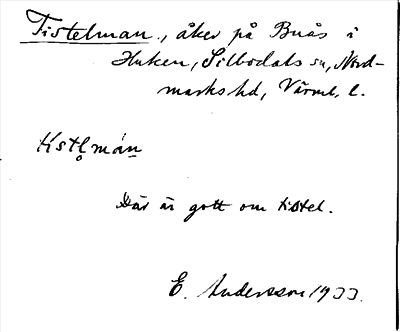 Tistelman., åker på Buås i
Huken, Silbodals sn, Nord-
marks hd, Värml. l.
tıstl̥mán
Där är gott om tistel.
E. Andersson 1933.